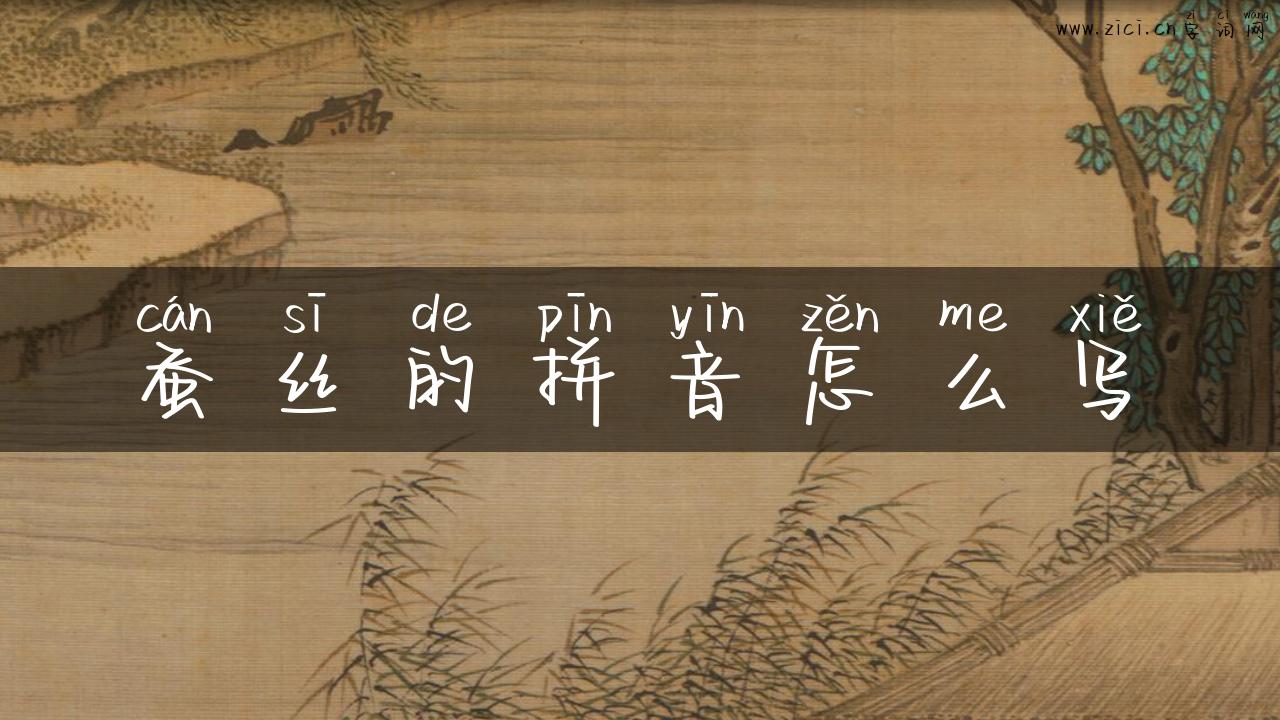 zì cí wǎng
www.zici.cn字词网
cán sī de pīn yīn zěn me xiě
蚕丝的拼音怎么写